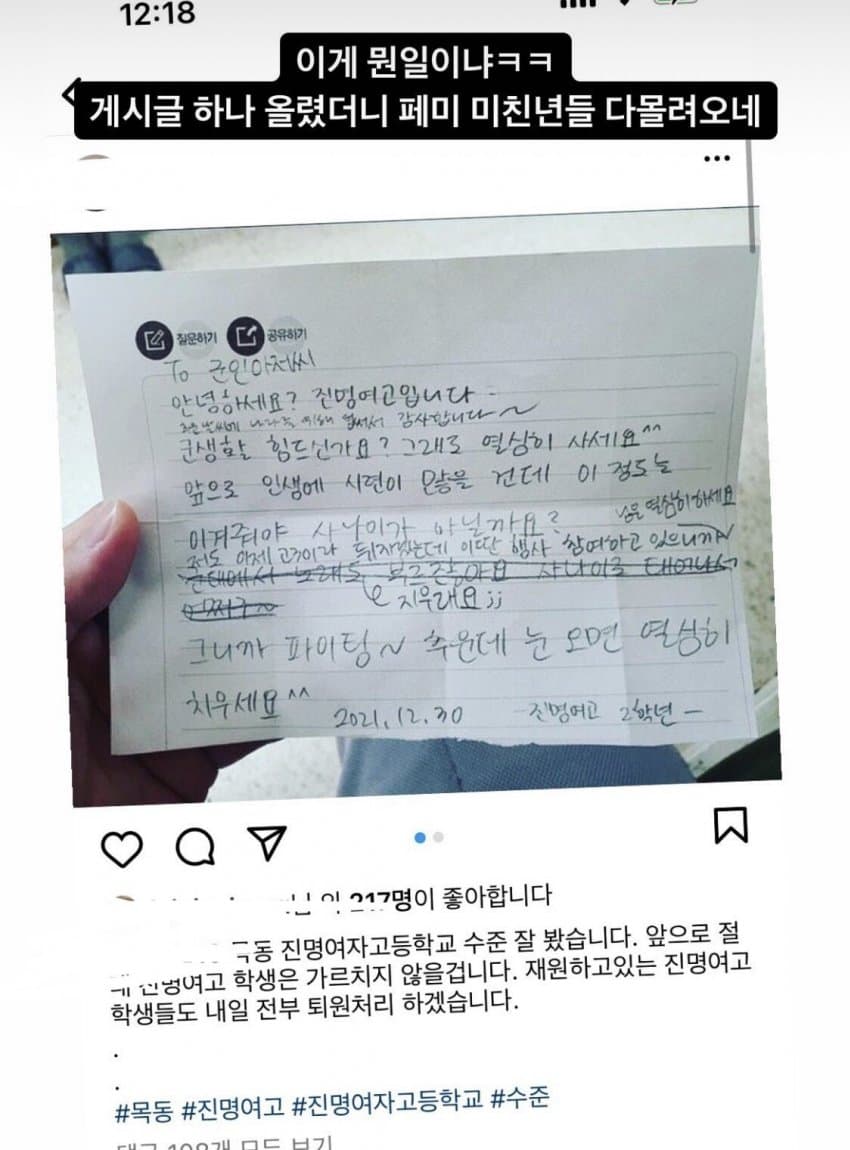 12:18
이게 뭔일이냐ㅋㅋ
게시글 하나 올렸더니 페미 미친년들 다몰려오네
질문하기 공유하기
To 군인아저씨
안녕하세요? 진명여고입니다
추운 날씨에 나라를 위해 힘써서 감사합니다~
군생활 힘드신가요? 그래도 열심히 사세요^^
앞으로 인생에 시련이 많을 건데 이 정도는
이겨줘야 사나이가 아닐까요?
저도 이제 고3이라 뒤지겠는데 이딴 행사 참여하고 있으니까
님은 열심히하세요
군대에서 노래도 부르잖아요 사나이로 태어나서
어쩌구~
지우래요;;
그니까 파이팅~ 추운데 눈 오면 열심히
치우세요^^
2021.12.30 -진명여고 2학년-
217명이 좋아합니다
목동 진명여자고등학교 수준 잘 봤습니다. 앞으로 절
대 진명여고 학생은 가르치지 않을겁니다. 재원하고있는 진명여고
학생들도 내일 전부 퇴원처리 하겠습니다.
.
.
#목동 #진명여고 #진명여자고등학교 #수준